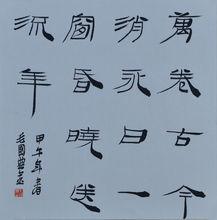 萬卷古今
消永日一
窗昏曉送
流年
甲午年春